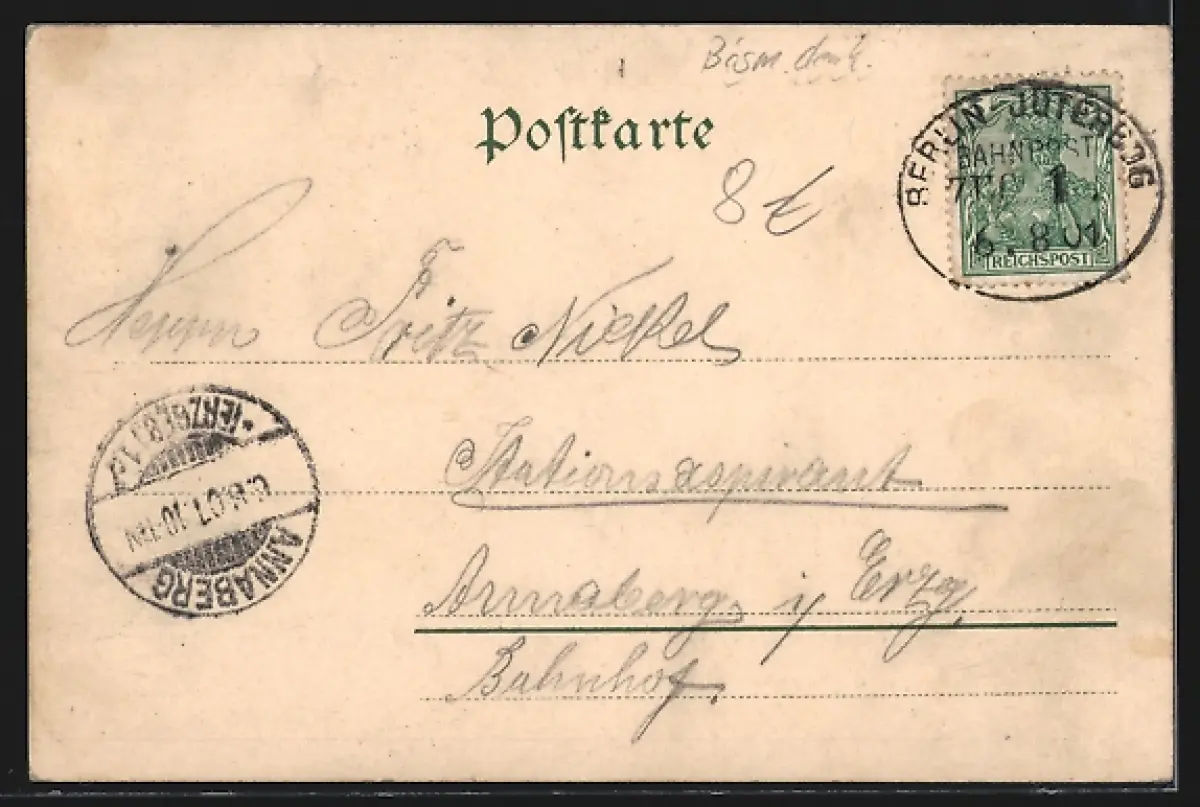 Bism. denk.
Postkarte
8 £
BERLIN JÜTERBOG
BAHNPOST
ZUG 1.
6. 8 01
REICHSPOST
Herrn Fritz Nickel
Stationsaspirant
Annaberg i/ Erzg.
Bahnhof.
ANNABERG
*(ERZGEB.)1*
.8.01.10-11N